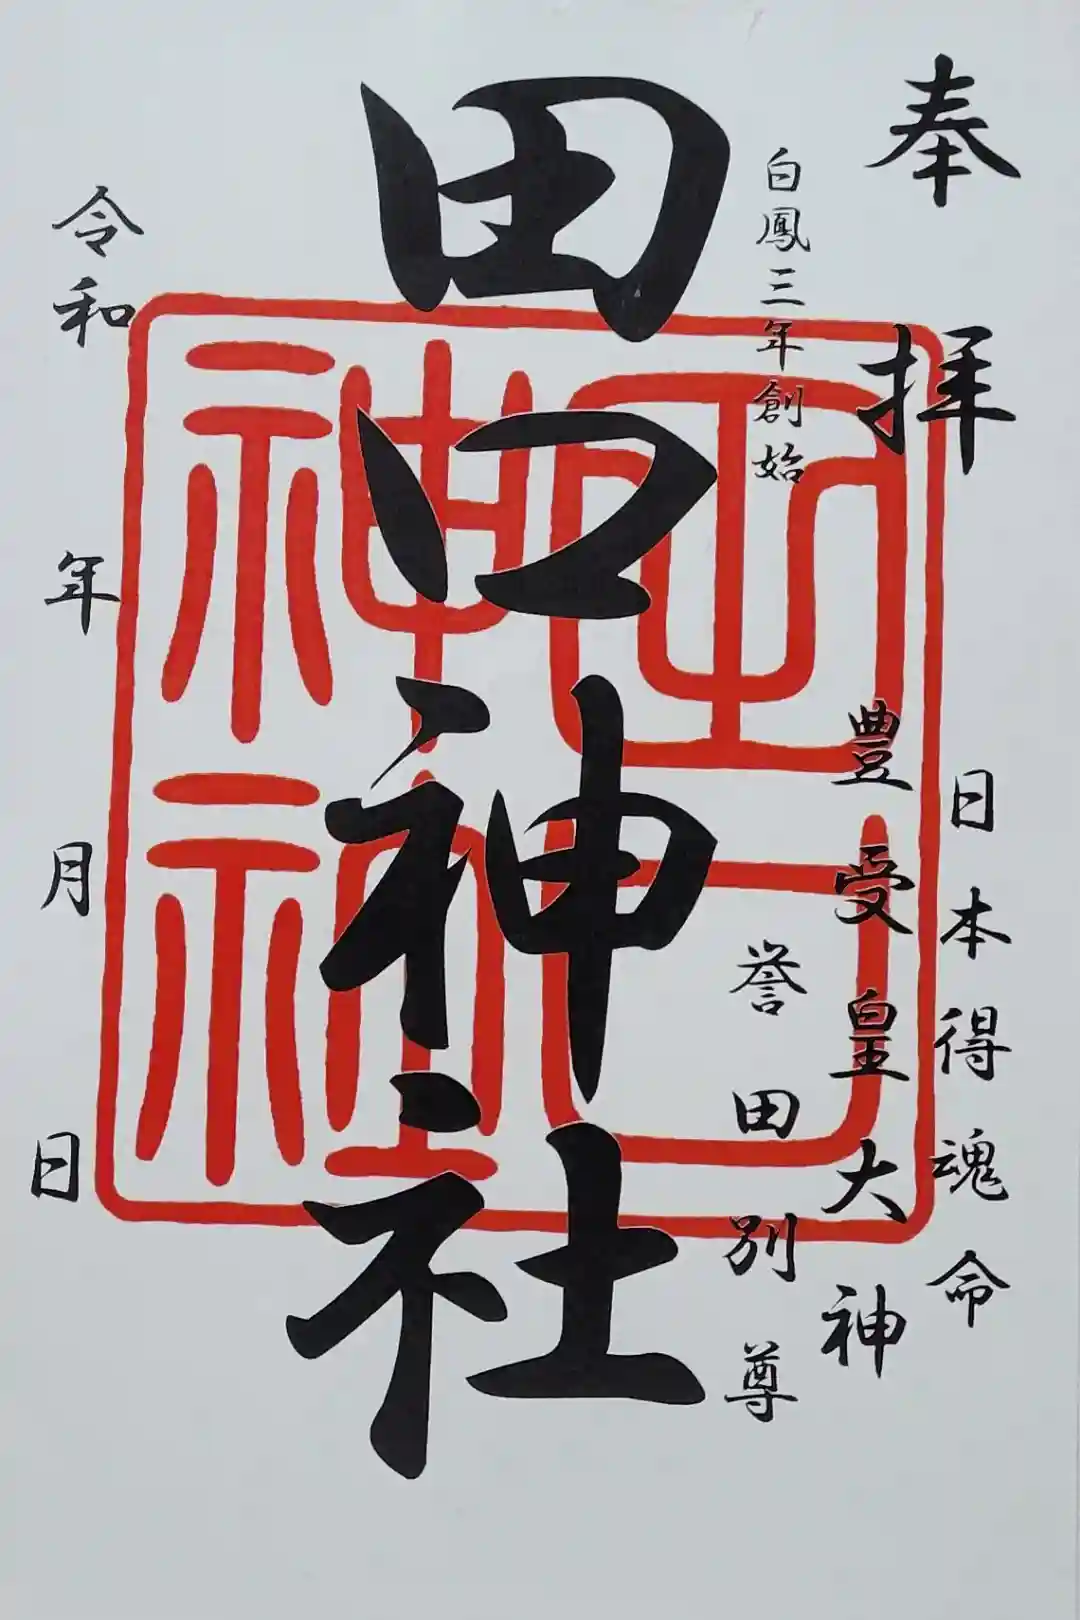 奉拝
日本得魂命
豊受皇大神
白鳳三年創始
誉田別尊
田口神社
田口神社
令和 年 月 日